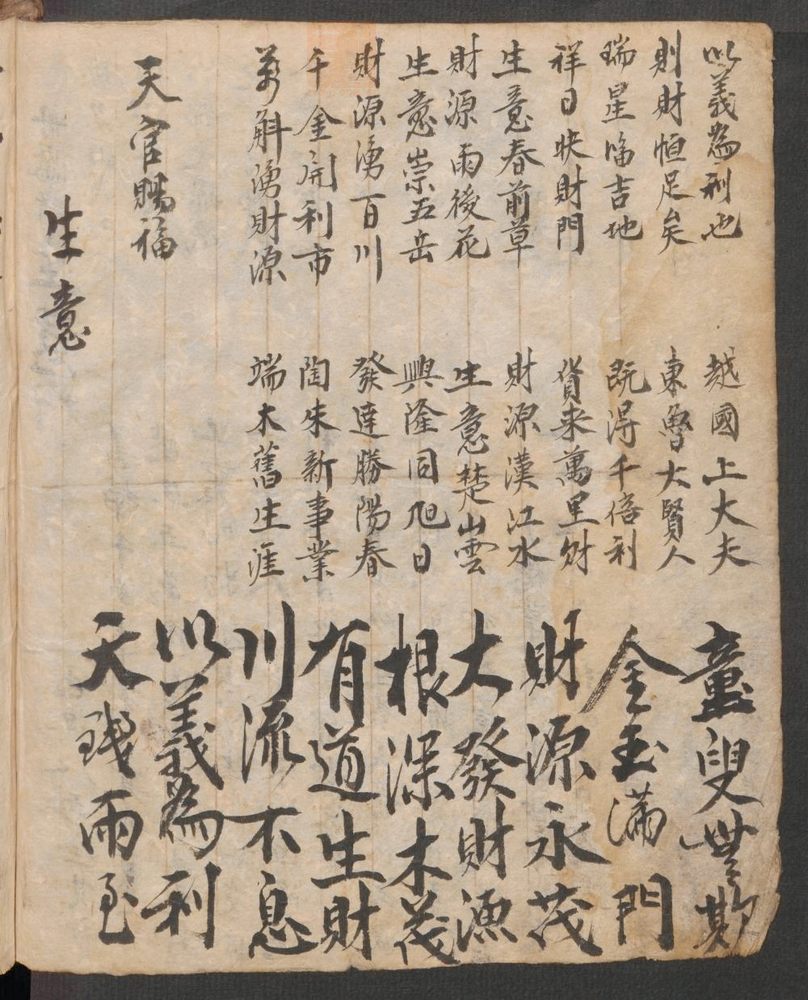 以義為利也
則財恒足矣
瑞星臨吉地
祥日映財門
生意春前草
財源雨後花
生意崇五岳
財源湧百川
千金開利市
萬斛湧財源
天官賜福
生意
越國上大夫
東魯大賢人
既得千倍利
貨来萬里財
財源漢江水
生意楚山雲
興隆同旭日
發達勝陽春
陶朱新事業
端木舊生涯
童叟無欺
金玉滿門
財源永茂
大發財漁
根深木茂
有道生財
川流不息
以義為利
天錢雨至